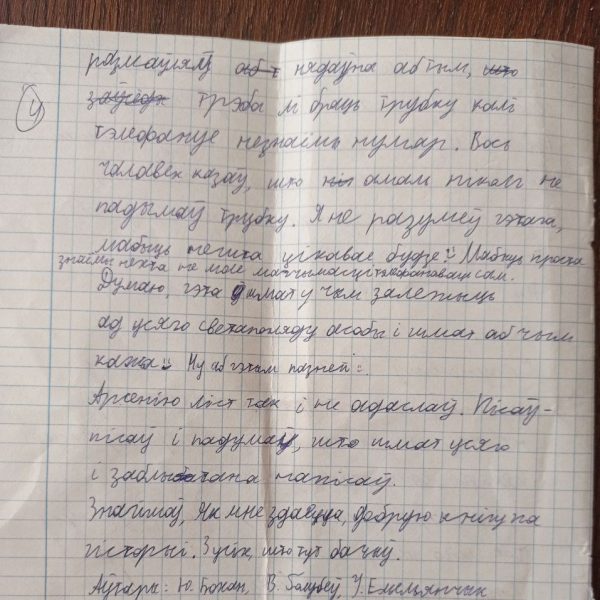 размаўляў нядаўна аб тым,
трэба лі браць трубку калі
тэлефануе незнаёмы нумар. Вось
чалавек казаў, што амаль ніколі не
падымаў трубку. Я не разумеў гэтага,
мабыць нешта цікавае будзе! Мабыць проста
знаёмы нехта не мае магчымасці тэлефанаваць сам.
Думаю, гэта шмат у чым залежыць
ад усяго светапогляду асобы і шмат аб чым
кажа Ну аб гэтым пазней
Арсенію ліст так і не адаслаў. Пісаў-
пісаў і падумаў, што шмат усяго
і заблытана напісаў.
Знайшоў, як мне здаецца, добрую кнігу па
гісторыі. З усіх, што тут бачыў.
Аўтары: Ю. Бохан, В. Голубеў, У. Емельянчык